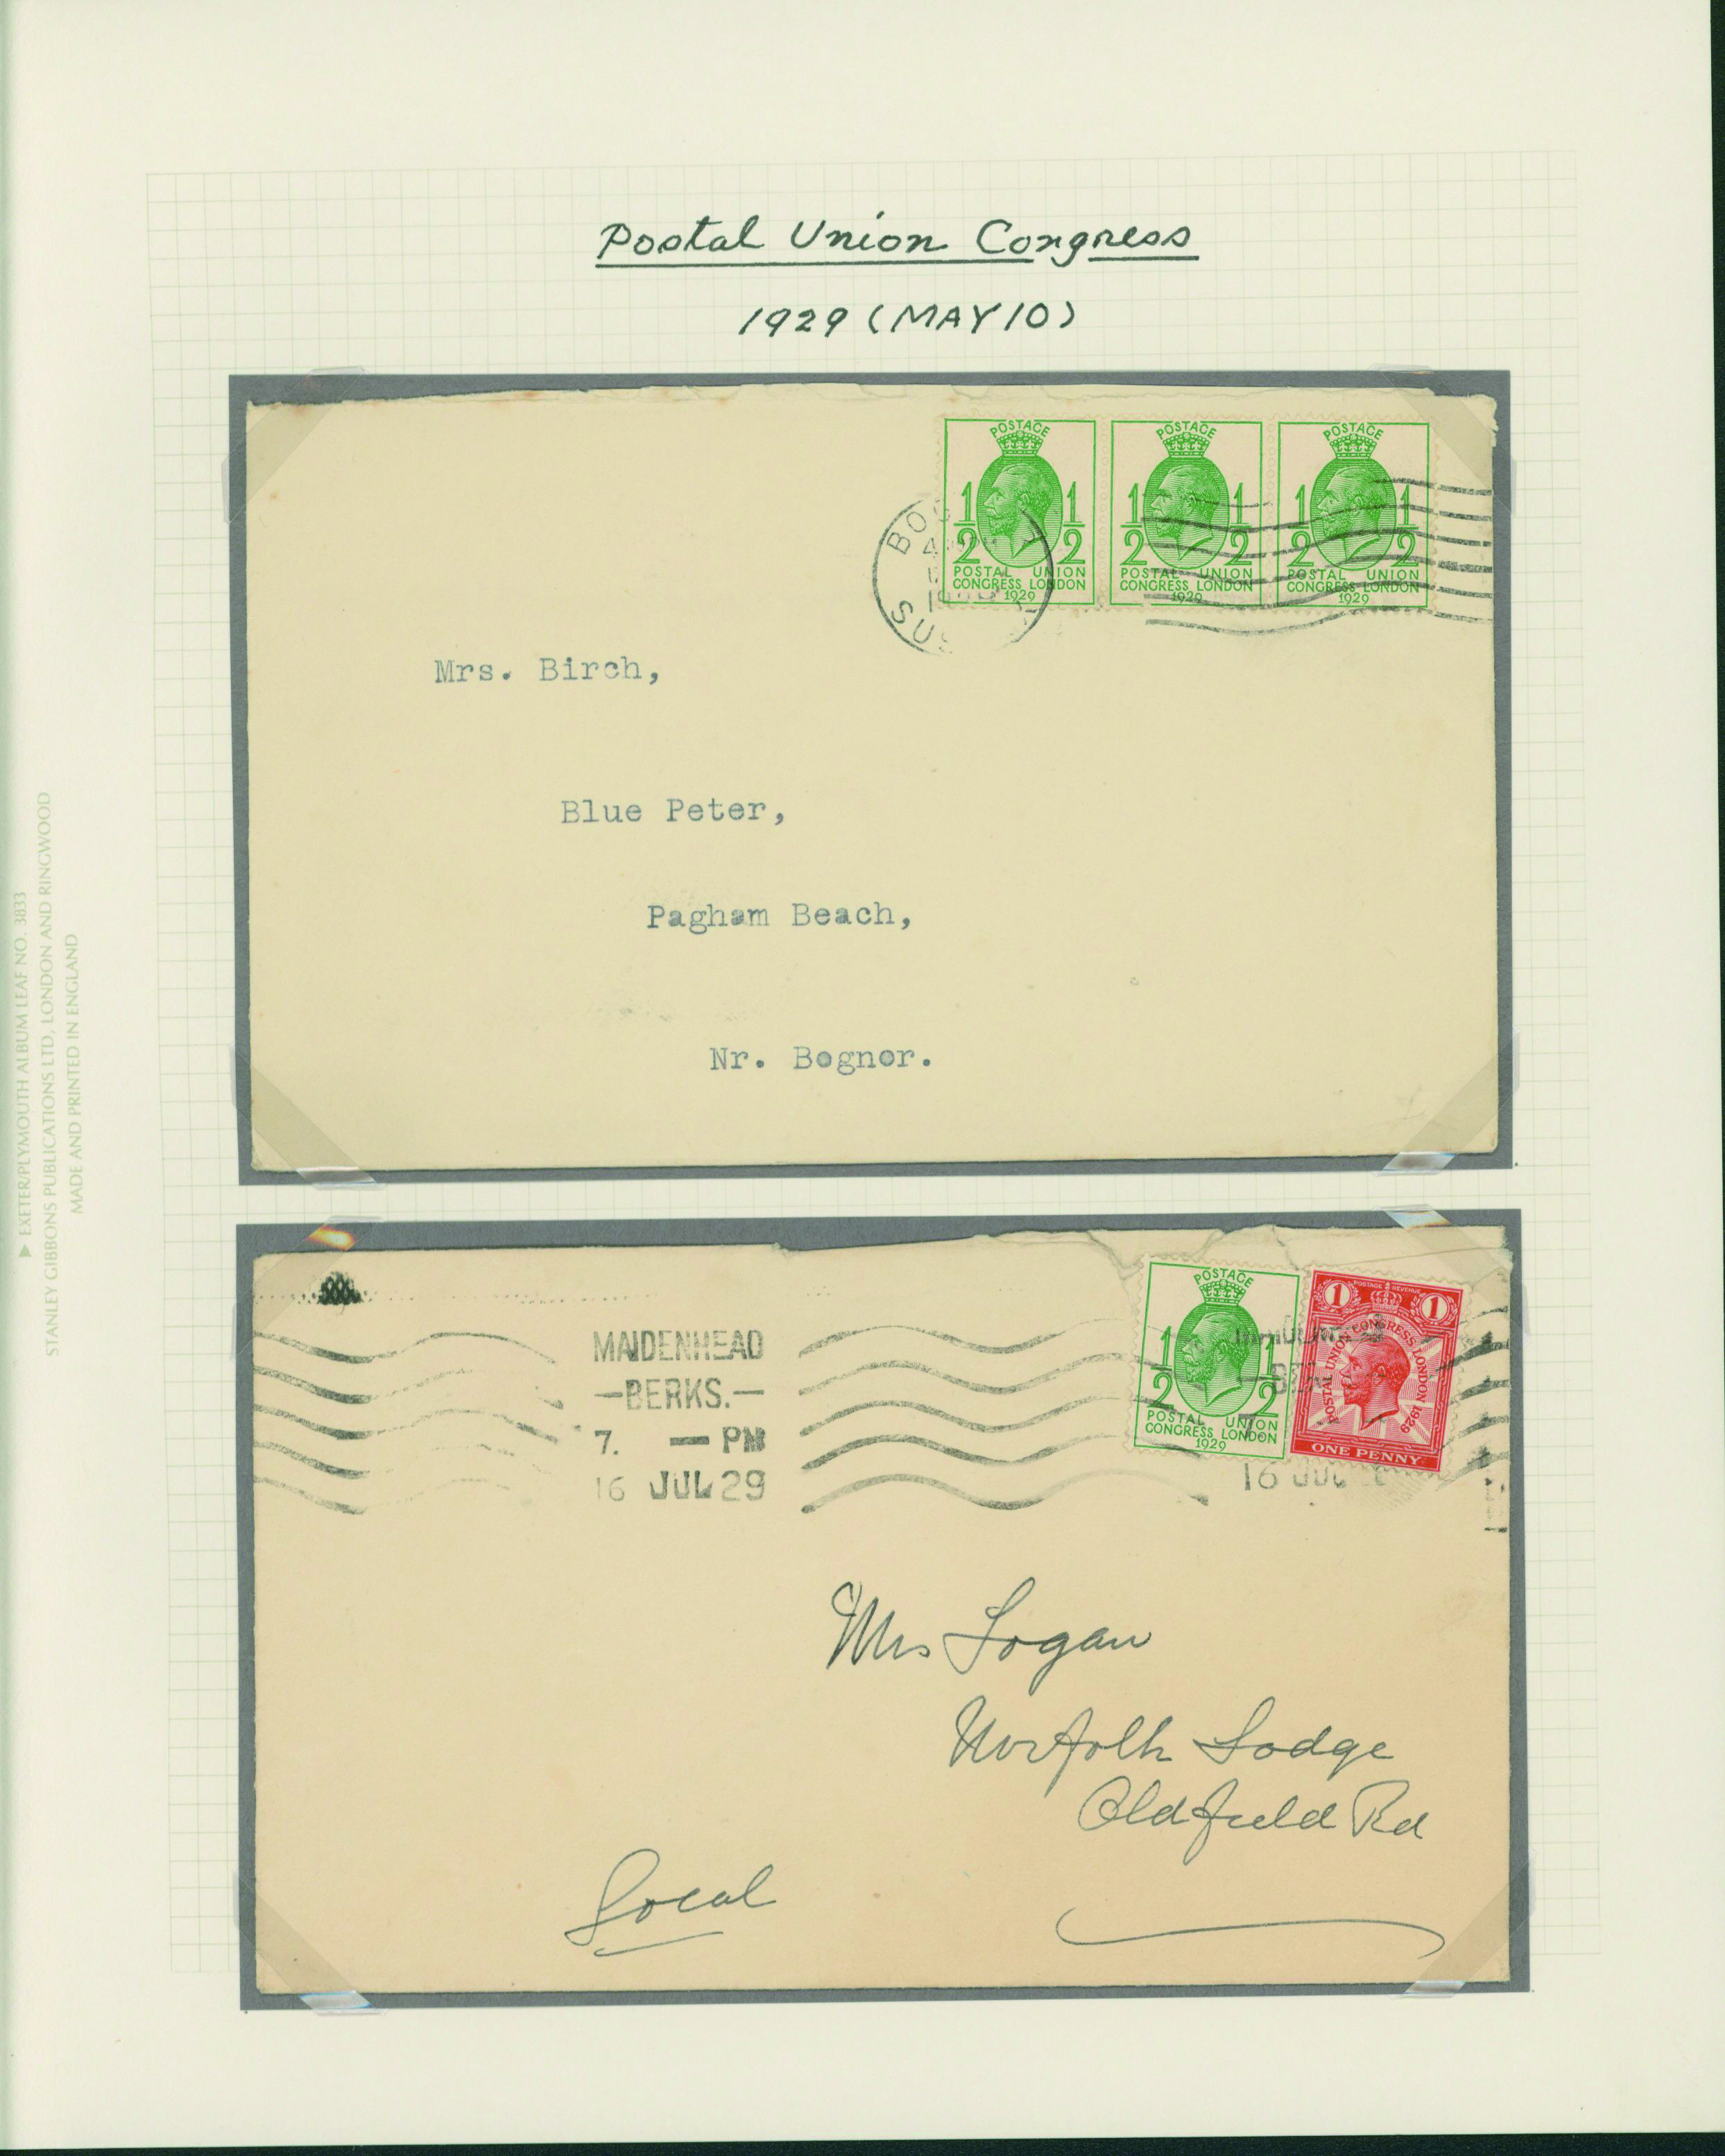 Postal Union Congress
1929 (MAY 10)
POSTAGE
1/2 1/2
POSTAL UNION
CONGRESS LONDON
1929
POSTAGE
1/2 1/2
POSTAL UNION
CONGRESS LONDON
1929
POSTAGE
1/2 1/2
POSTAL UNION
CONGRESS LONDON
1929
Mrs. Birch,
Blue Peter,
Pagham Beach,
Nr. Bognor.
MAIDENHEAD
—BERKS.—
7. — PM
16 JUL 29
POSTAGE
1/2 1/2
POSTAL UNION
CONGRESS LONDON
1929
POSTAGE & REVENUE
1 1
POSTAL UNION CONGRESS LONDON 1929
ONE PENNY
16 JUL
Mrs Logan
Norfolk Lodge
Oldfield Rd
Local
▶ EXETER/PLYMOUTH ALBUM LEAF NO. 3833
STANLEY GIBBONS PUBLICATIONS LTD, LONDON AND RINGWOOD
MADE AND PRINTED IN ENGLAND